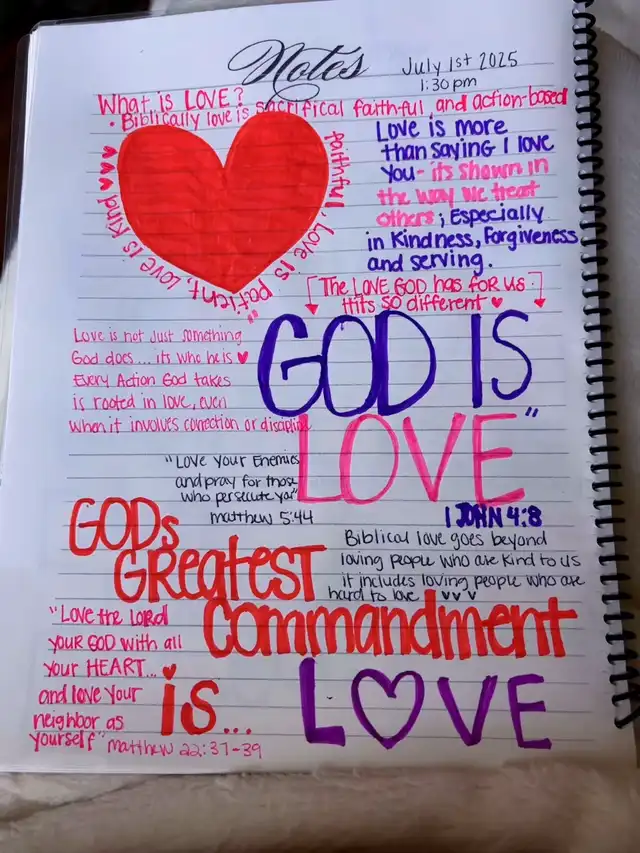 Notes
July 1st 2025
1:30pm
What is LOVE?
• Biblically love is sacrifical faithful and action-based
faithful, Love is patient, Love is Kind
Love is more
than saying I love
you- its shown in
the way we treat
others; Especially
in Kindness, Forgiveness
and serving.
The LOVE GOD has for us
Hits SO different
Love is not just something
God does.... its who he is
Every Action God takes
is rooted in love, even
when it involves correction or discipline
"GOD IS
LOVE"
1 JOHN 4:8
"Love your Enemies
and pray for those
who persecute you"
matthew 5:44
Biblical love goes beyond
loving people who are kind to us
it includes loving people who are
hard to love
GODs
GREatest
Commandment
is...
LOVE
"Love the LORD
your GOD with all
your HEART...
and love your
neighbor as
yourself"
matthew 22:37-39